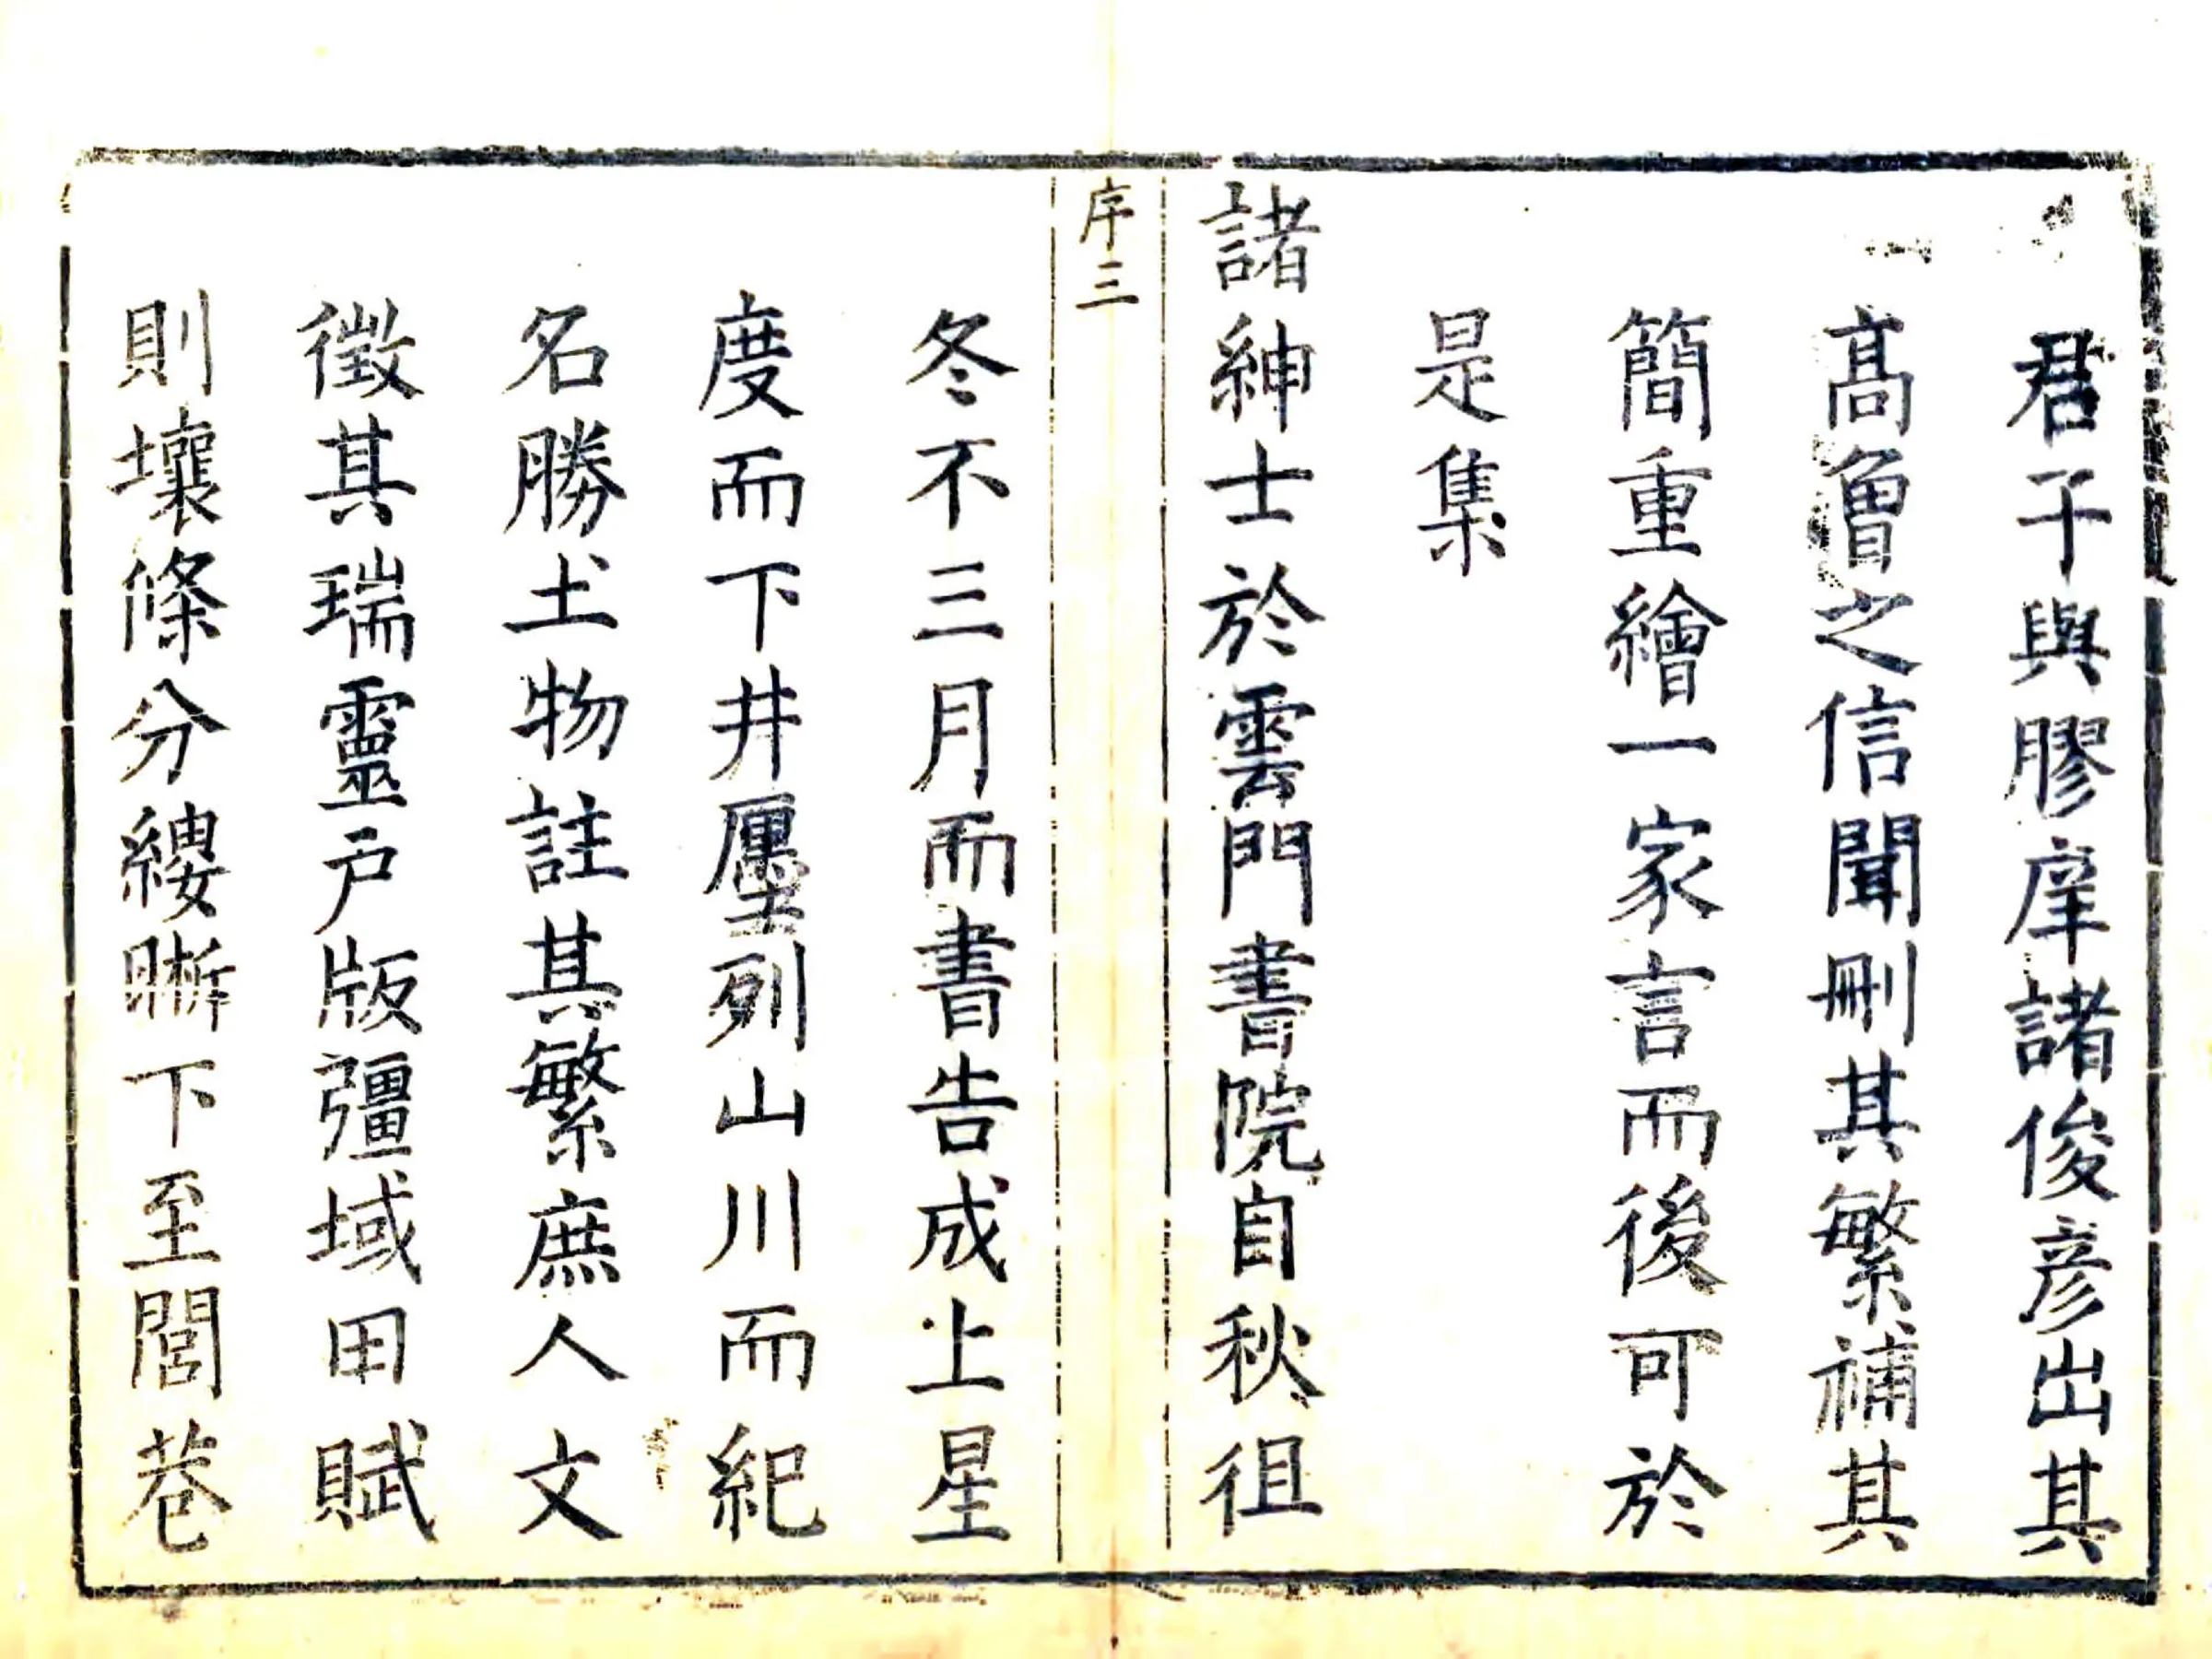 君子與膠庠諸俊彦出其
髙曾之信聞刪其繁補其
簡重繪一家言而後可於
是集
諸紳士於雲門書院自秋徂
序三
冬不三月而書告成上星
度而下井㕓列山川而紀
名勝土物註其繁庶人文
徵其瑞靈户版疆域田賦
則壤條分縷晰下至閭巷